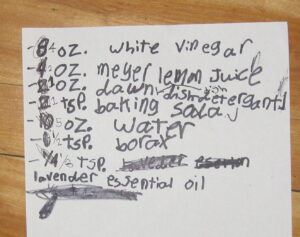 -4 oz. white vinegar
oz. meyer lemon juice
oz. dawn dish detergant
tsp. baking soda
oz. water
borax
-1/2 tsp.
lavender essential oil